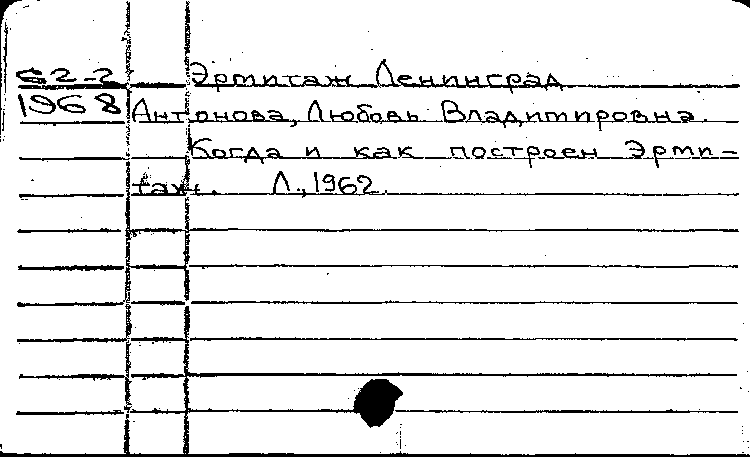 62-2 Эрмитаж Ленинград
1968 Антонова, Любовь Владимировна.
Когда и как построен Эрми-
таж. Л., 1962.